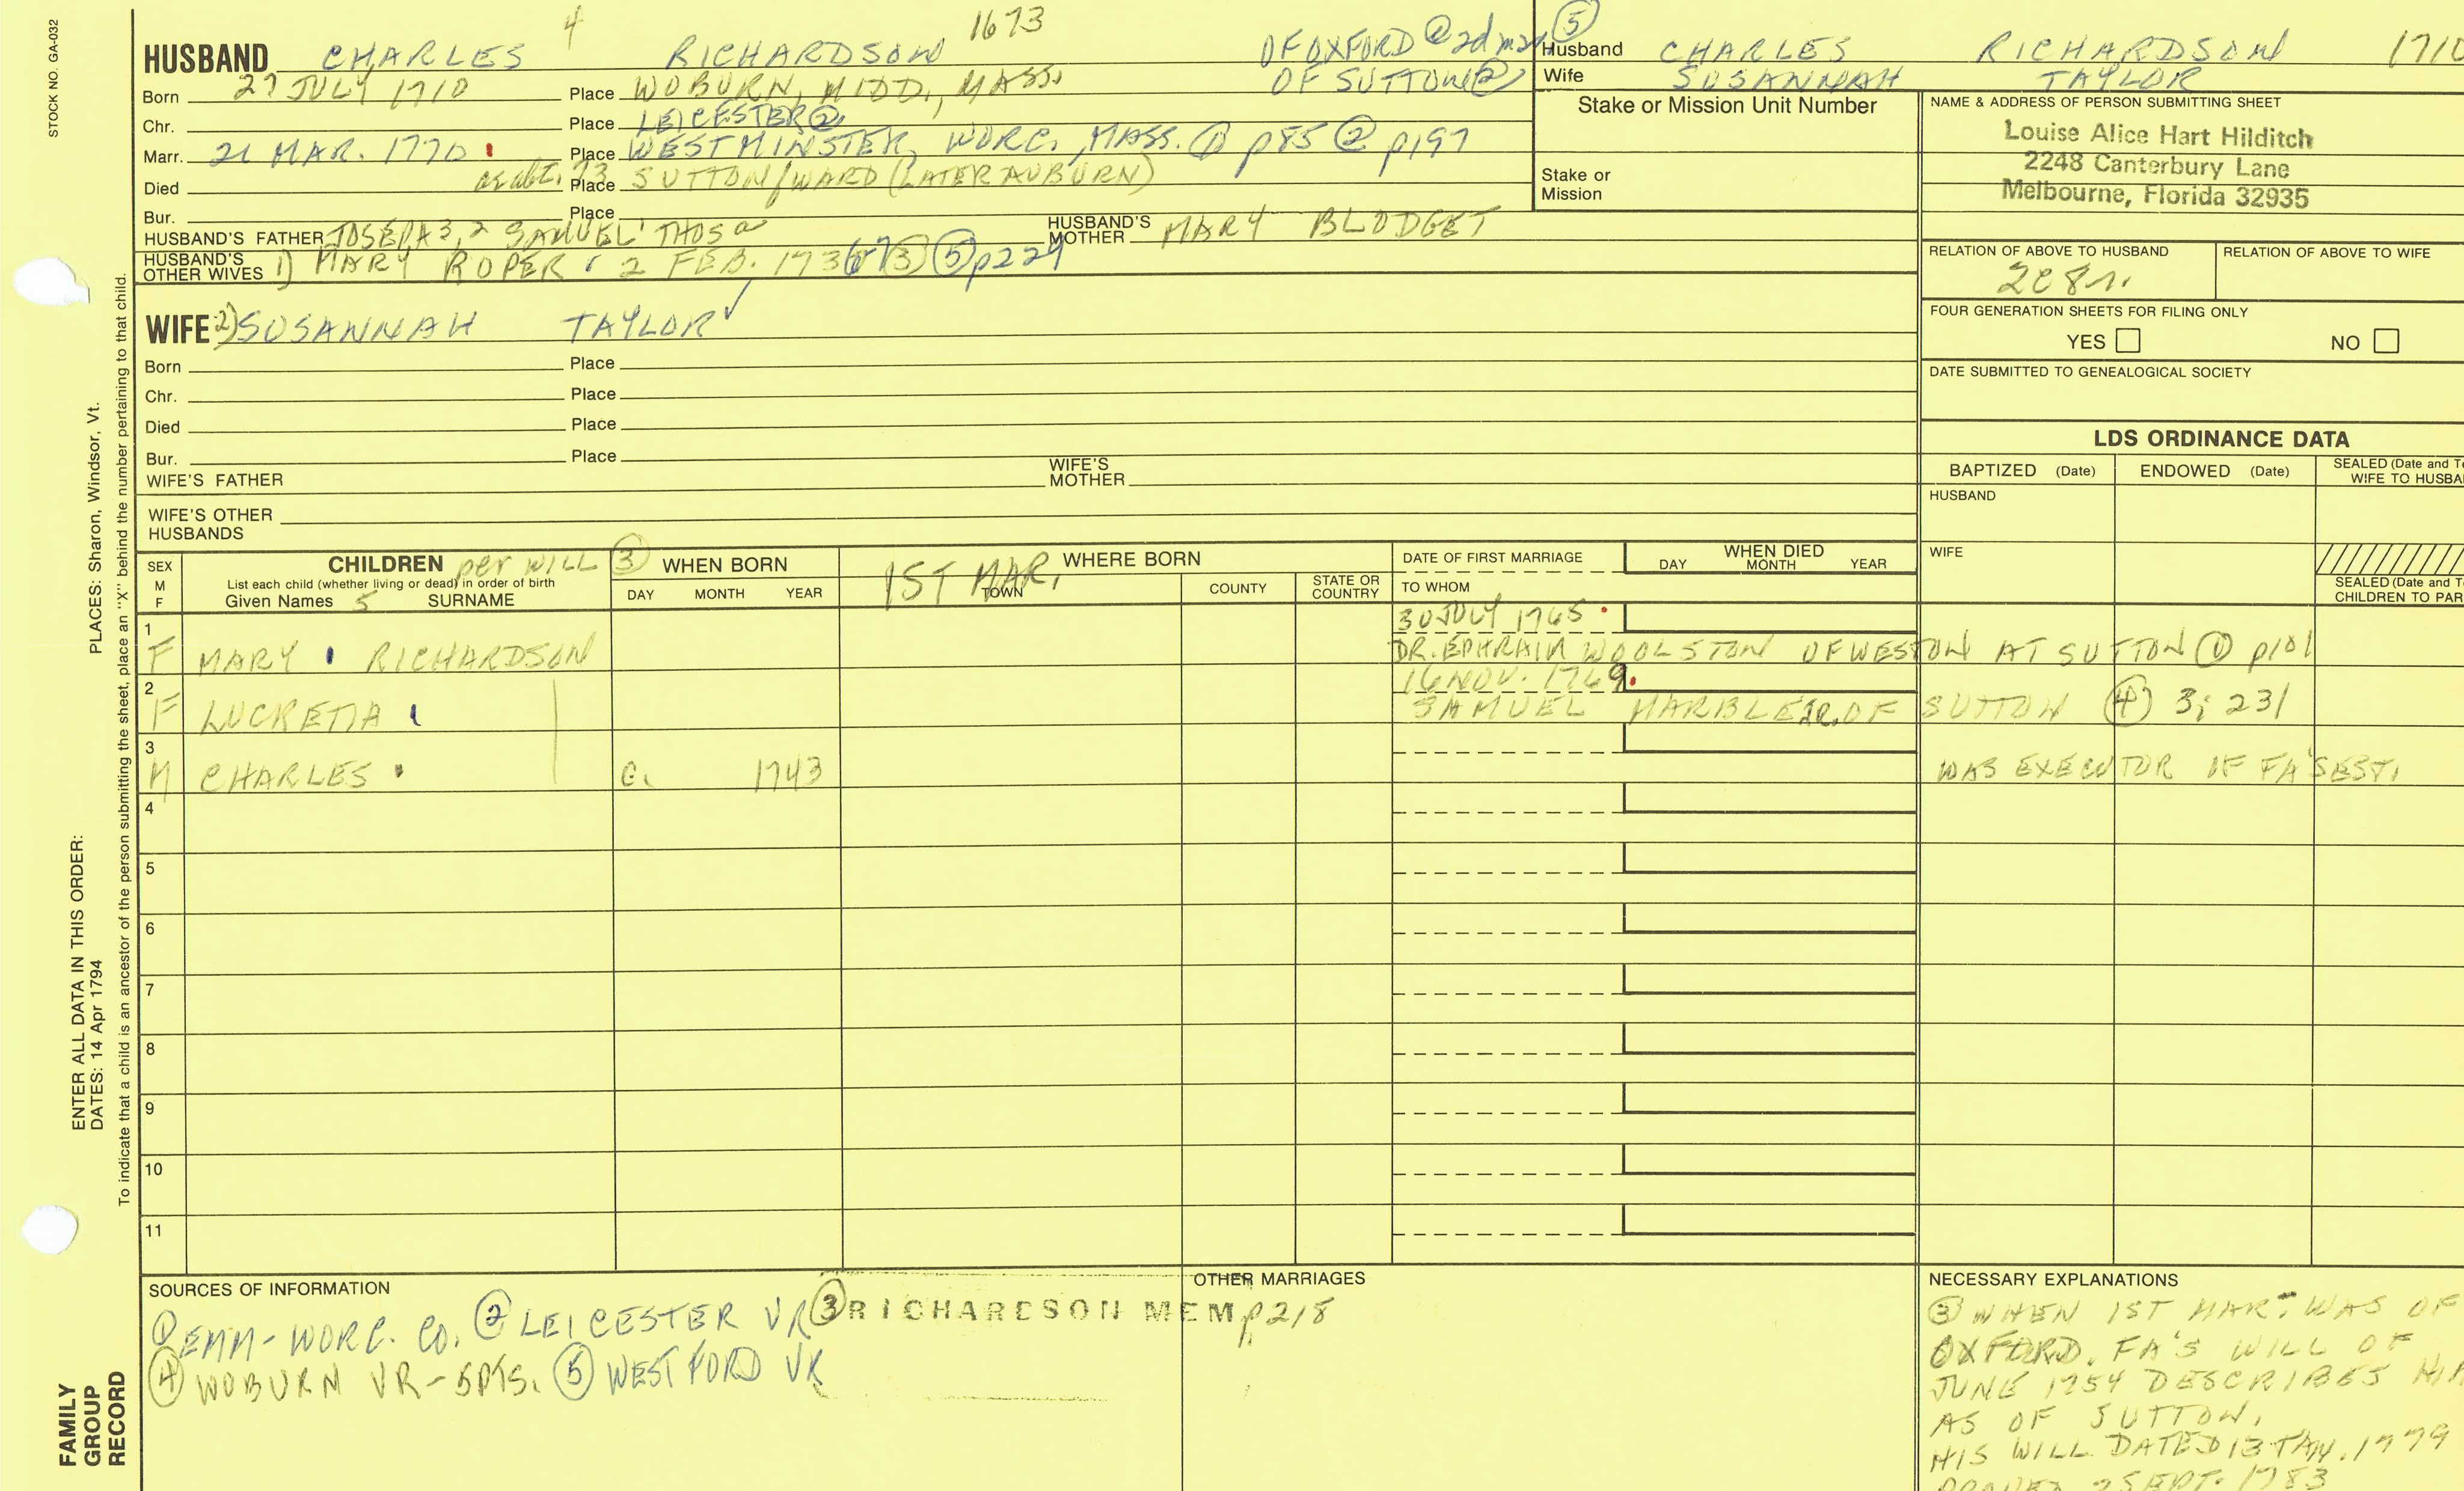 STOCK NO. GA-032
4 1673
HUSBAND CHARLES RICHARDSON OF OXFORD @ 2d mar
Born 27 JULY 1710 Place WOBURN, MIDD., MASS. OF SUTTON @
Chr. Place LEICESTER ②
Marr. 21 MAR. 1770 Place WESTMINSTER, WORC., MASS. ① p85 ② p197
Died Place SUTTON/WARD (LATER AUBURN)
Bur. Place
HUSBAND'S FATHER JOSEPH 3, 2 SAMUEL 1 THOS HUSBAND'S MOTHER MARY BLODGET
HUSBAND'S OTHER WIVES 1) MARY ROPER 2 FEB. 173 ③ ⑤ p229
WIFE 2) SUSANNAH TAYLOR ✓
Born Place
Chr. Place
Died Place
Bur. Place
WIFE'S FATHER WIFE'S MOTHER
WIFE'S OTHER HUSBANDS
⑤
Husband CHARLES RICHARDSON 1710
Wife SUSANNAH TAYLOR
Stake or Mission Unit Number
Stake or Mission
NAME & ADDRESS OF PERSON SUBMITTING SHEET
Louise Alice Hart Hilditch
2248 Canterbury Lane
Melbourne, Florida 32935
RELATION OF ABOVE TO HUSBAND RELATION OF ABOVE TO WIFE
2C8r.
FOUR GENERATION SHEETS FOR FILING ONLY
YES NO
DATE SUBMITTED TO GENEALOGICAL SOCIETY
LDS ORDINANCE DATA
BAPTIZED (Date) ENDOWED (Date) SEALED (Date and T
WIFE TO HUSBA
HUSBAND
WIFE
SEALED (Date and T
CHILDREN TO PAR
SEX M F CHILDREN per WILL ③ WHEN BORN 1ST MAR. WHERE BORN DATE OF FIRST MARRIAGE WHEN DIED
List each child (whether living or dead) in order of birth
Given Names 5 SURNAME DAY MONTH YEAR TOWN COUNTY STATE OR COUNTRY TO WHOM DAY MONTH YEAR
1 30 JULY 1765
F MARY RICHARDSON DR. EPHRAIM WOOLSTON OF WESTON AT SUTTON ① p101
2 16 NOV. 1769
F LUCRETIA SAMUEL MARBLE JR. OF SUTTON ④ 3; 231
3
M CHARLES C. 1743 WAS EXECUTOR OF FA'S EST.
4
5
6
7
8
9
10
11
SOURCES OF INFORMATION
① EMM-WORC. CO. ② LEICESTER VR ③ RICHARDSON MEM p218
④ WOBURN VR-5PTS. ⑤ WESTFORD VR
OTHER MARRIAGES
NECESSARY EXPLANATIONS
③ WHEN 1ST MAR. WAS OF
OXFORD. FA'S WILL OF
JUNE 1754 DESCRIBES HIM
AS OF SUTTON.
HIS WILL DATED 13 JAN. 1779
PROVED 2 SEPT. 1783
PLACES: Sharon, Windsor, Vt.
ENTER ALL DATA IN THIS ORDER:
DATES: 14 Apr 1794
To indicate that a child is an ancestor of the person submitting the sheet, place an "X" behind the number pertaining to that child.
FAMILY
GROUP
RECORD